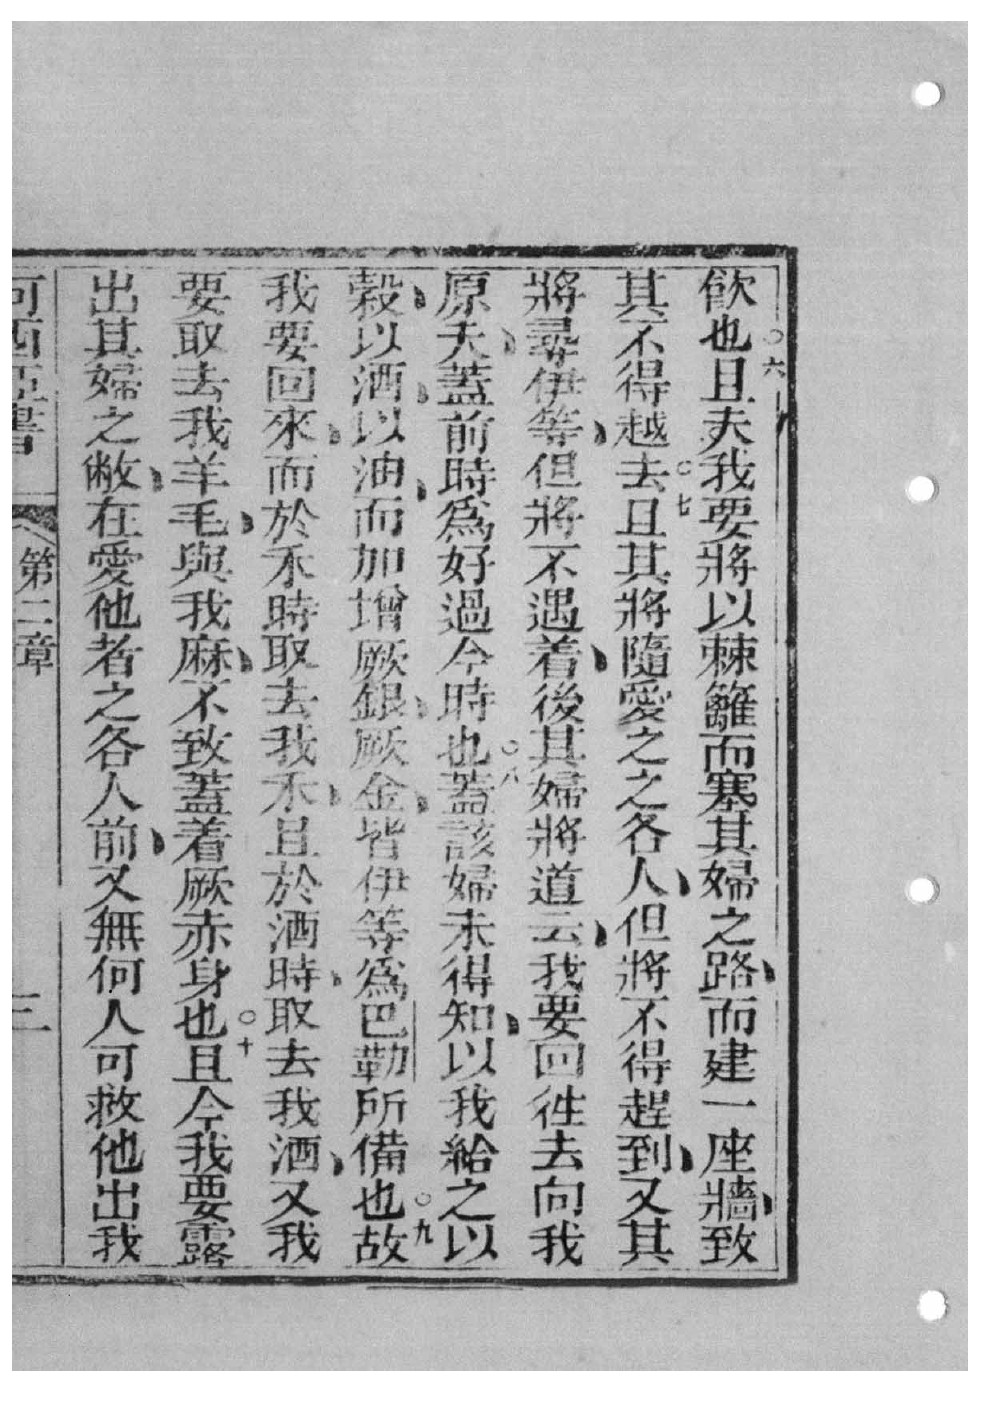 飮也○六且夫我要將以棘籬而塞其婦之路而建一座牆致
其不得越去○七且其將隨愛之之各人但將不得趕到又其
將尋伊等但將不遇着後其婦將道云我要回徃去向我
原夫蓋前時爲好過今時也○八蓋該婦未得知以我給之以
穀以酒以油而加增厥銀厥金皆伊等爲巴勒所備也○九故
我要回來而於禾時取去我禾且於酒時取去我酒又我
要取去我羊毛與我麻不致蓋着厥赤身也○十且今我要露
出其婦之敝在愛他者之各人前又無何人可救他出我
何西亞書 第二章 三